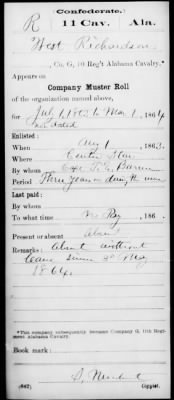 Confederate.
R 11 Cav. Ala.
West Richardson
, Co. G, 10 Reg't Alabama Cavalry.*
Appears on
Company Muster Roll
of the organization named above,
for July 1, 1862 to Mar 1, 1864
not dated
Enlisted:
When Aug 1, 1863.
Where Center Star
By whom Capt
Period Three years or during the war
Last paid:
By whom
To what time No Pay, 186 .
Present or absent Absent
Remarks: Absent without
leave since 3d May
1864
*This company subsequently became Company G, 11th Regiment Alabama Cavalry.
Book mark:
(642) Copyist.